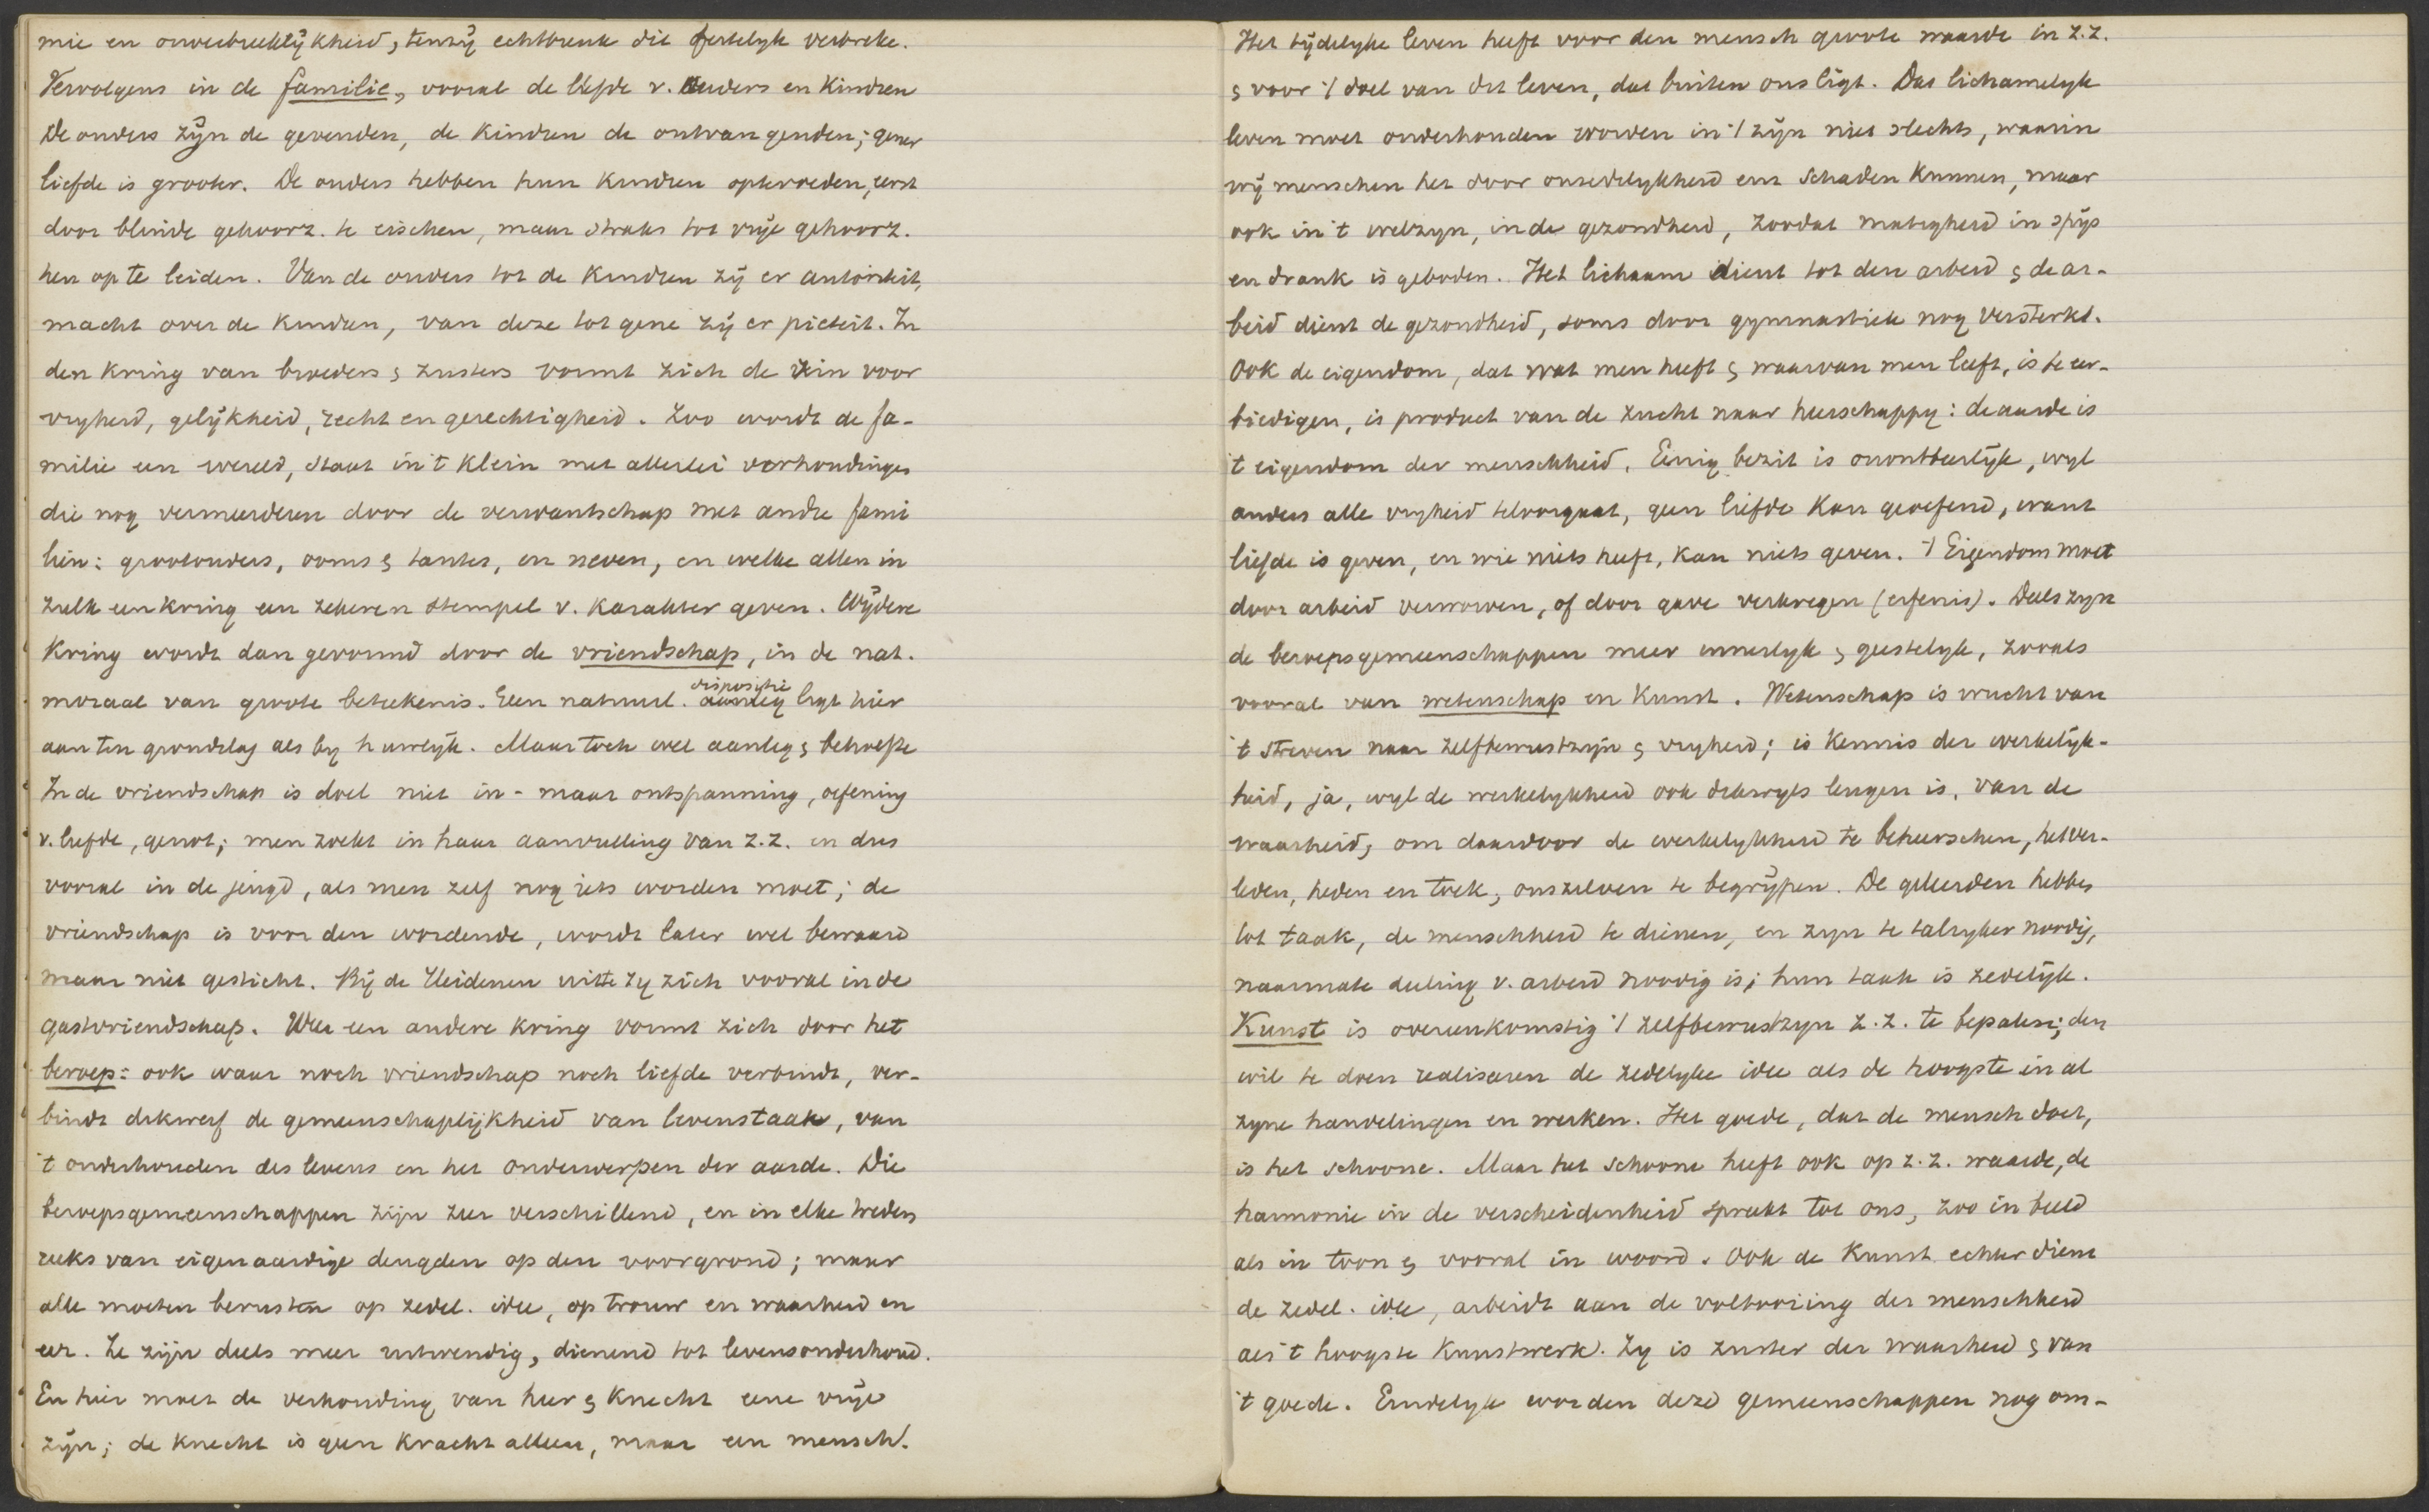 mie en onverbreeklijkheid, tenzij echtbreuk dit feitelyk verbreke.
Vervolgens in de familie, vooral de liefde v. ouders en kindren
De ouders zijn de gevenden, de kindren de ontvangenden; gener
liefde is grooter. De ouders hebben hun kindren optevoeden, eerst
door blinde gehoorz. te eischen, maar straks tot vrije gehoorz.
hen op te leiden. Van de ouders tot de kindren zij er autoriteit,
macht over de kindren, van deze tot gene zij er pieteit. In
den kring van broeders & zusters vormt zich de zin voor
vryheid, gelijkheid, recht en gerechtigheid. Zoo wordt de fa-
milie een wereld, staat in 't klein met allerlei verhoudingen
die nog vermeerderen door de verwantschap met andre fami
liën: grootouders, ooms & tantes, en neven, en welke allen in
zulk een kring een zekeren stempel v. karakter geven. Wijdere
kring wordt dan gevormd door de vriendschap, in de nat.
moraal van groote beteekenis. Een natuurl. dispositie aanleg ligt hier
aan ten grondslag als by huwlijk. Maar toch wel aanleg & behoefte
In de vriendschap is doel niet in- maar ontspanning, oefening
v. liefde, genot; men zoekt in haar aanvulling van z.z. en dus
vooral in de jeugd, als men zelf nog iets worden moet; de
vriendschap is voor den wordende, wordt later wel bewaard
maar niet gesticht. Bij de Heidenen uitte zy zich vooral in de
gastvriendschap. Weer een andere kring vormt zich door het
beroep: ook waar noch vriendschap noch liefde verbindt, ver-
bindt dikwerf de gemeenschaplijkheid van levenstaak, van
't onderhouden des levens en het onderwerpen der aarde. Die
beroepsgemeenschappen zijn zeer verschillend, en in elke treden
reeks van eigenaardige deugden op den voorgrond; maar
alle moeten berusten op zedel. idee, op trouw en waarheid en
eer. Ze zijn deels meer uitwendig, dienend tot levensonderhoud.
En hier moet de verhouding van heer & knecht eene vrije
zijn; de knecht is geen kracht alleen, maar een mensch.
Het tijdelyke leven heeft voor den mensch groote waarde in z.z.
& voor 't doel van dit leven, dat buiten ons ligt. Das lichamelyk
leven moet onderhouden worden in 't zijn niet slechts, waarin
wij menschen het door onzedelykheid een schaden kunnen, maar
ook in 't welzyn, in de gezondheid, zoodat matigheid in spijs
en drank is geboden. Het lichaam dient tot den arbeid & de ar-
beid dient de gezondheid, soms door gymnastiek nog versterkt.
Ook de eigendom, dat wat men heeft & waarvan men leeft, is te eer-
biedigen, is product van de zucht naar heerschappy: de aarde is
't eigendom der menschheid. Eenig bezit is onontbeerlijk, wyl
anders alle vryheid teloorgaat, geen liefde kan geoefend, want
liefde is geven, en wie niets heeft, kan niets geven. 't Eigendom moet
door arbeid verworven, of door gave verkregen (erfenis). Deels zyn
de beroepsgemeenschappen meer innerlyk & geestelyk, zooals
vooral van wetenschap en kunst. Wetenschap is vrucht van
't streven naar zelfbewustzijn & vryheid; is kennis der werkelijk-
heid, ja, wyl de werkelykheid ook dikwyls leugen is, van de
waarheid, om daardoor de werkelykheid te beheerschen, het ver-
leden, heden en toek, onszelven te begrijpen. De geleerden hebben
tot taak, de menschheid te dienen, en zyn te talryker noodig,
naarmate deeling v. arbeid noodig is; hun taak is zedelijk.
Kunst is overeenkomstig 't zelfbewustzyn z.z. te bepalen; den
wil te doen realiseren de zedelyke idee als de hoogste in al
zyne handelingen en werken. Het goede, dat de mensch doet,
is het schoone. Maar het schoone heeft ook op z.z. waarde, de
harmonie in de verscheidenheid spreekt tot ons, zoo in beeld
als in toon & vooral in woord. Ook de kunst echter dient
de zedel. idee, arbeidt aan de voltooiing der menschheid
als 't hoogste kunstwerk. Zy is zuster der waarheid & van
't goede. Eindelyk worden deze gemeenschappen nog om-